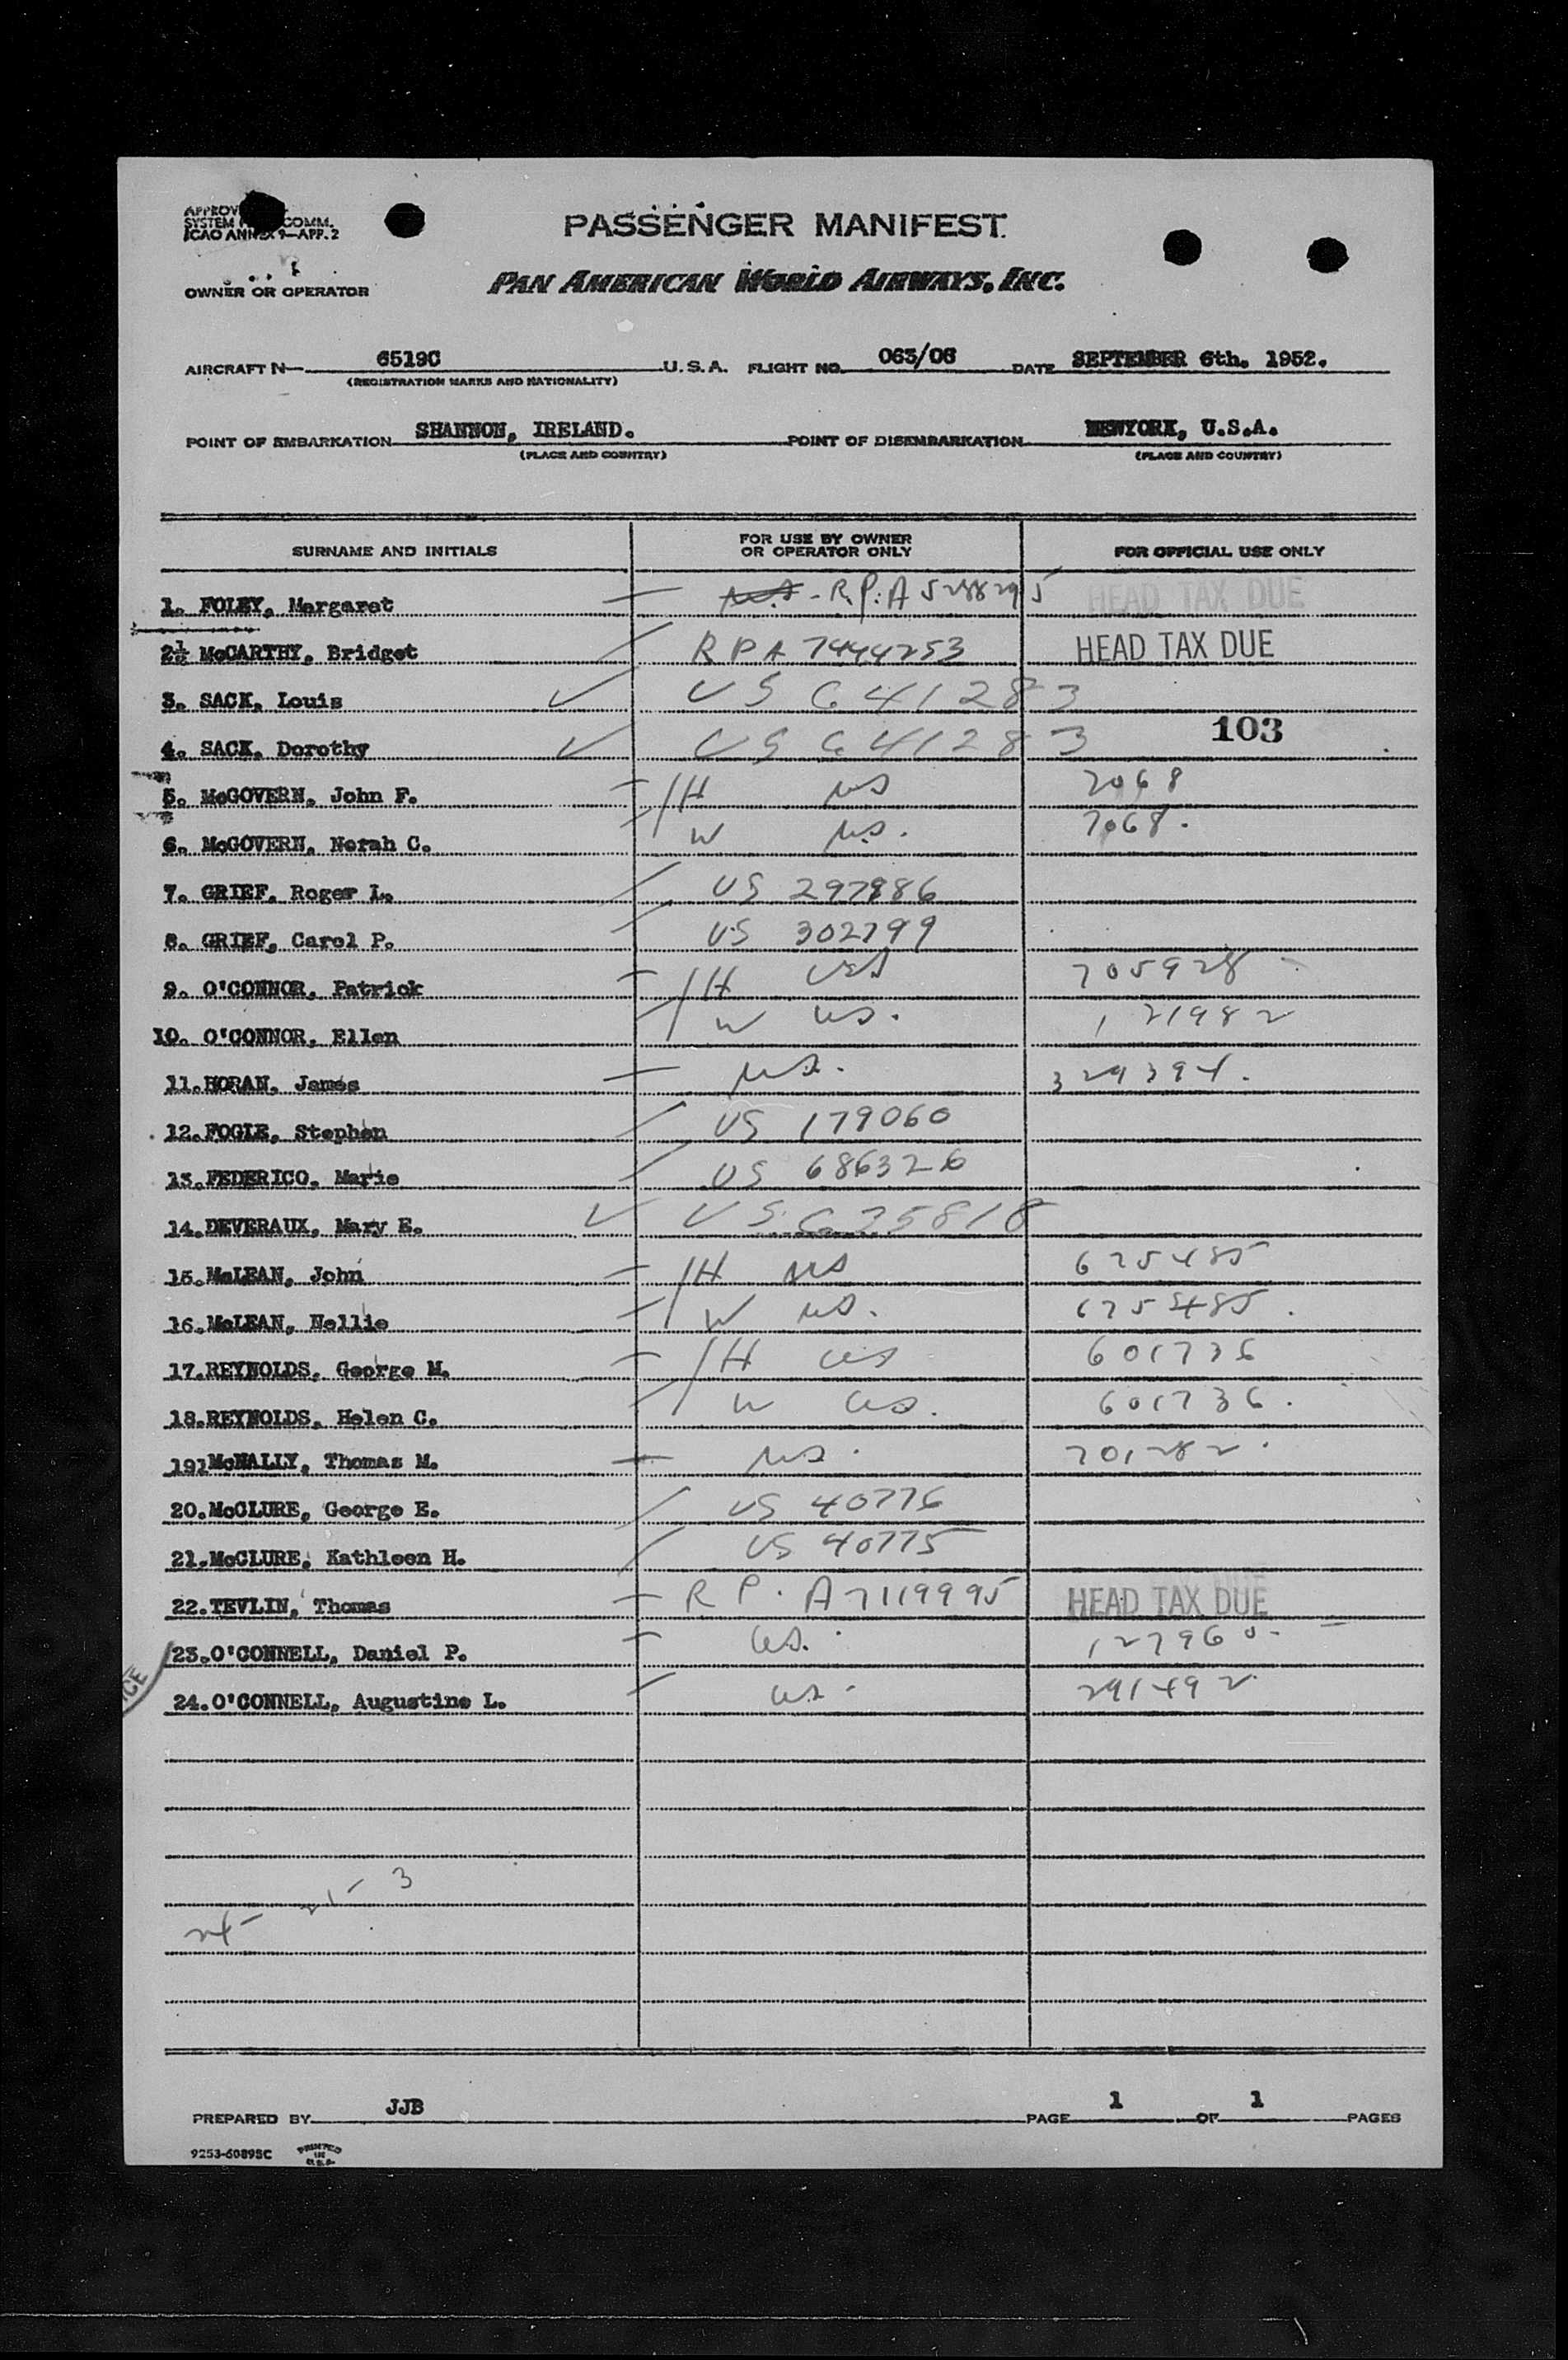 PASSENGER MANIFEST
SYSTEM COMM.
ICAO ANNEX 9—APP. 2
OWNER OR OPERATOR
PAN AMERICAN WORLD AIRWAYS, INC.
AIRCRAFT N— 6519C U. S. A. FLIGHT NO. 063/06 DATE SEPTEMBER 6th. 1952.
(REGISTRATION MARKS AND NATIONALITY)
POINT OF EMBARKATION SHANNON, IRELAND. POINT OF DISEMBARKATION NEWYORK, U.S.A.
(PLACE AND COUNTRY) (PLACE AND COUNTRY)
SURNAME AND INITIALS FOR USE BY OWNER OR OPERATOR ONLY FOR OFFICIAL USE ONLY
1. FOLEY, Margaret - R.P. A5288295 HEAD TAX DUE
2 McCARTHY, Bridget RPA 7444253 HEAD TAX DUE
3. SACK, Louis ✓ US G 41283
4. SACK, Dorothy ✓ US G 41283 103
5. McGOVERN, John F. H US 7068
6. McGOVERN, Norah C. W US. 7068.
7. GRIEF, Roger L. US 297886
8. GRIEF, Carol P. US 302799
9. O'CONNOR, Patrick H US 705928
10. O'CONNOR, Ellen W US. 121982
11. HORAN, James US. 329394.
12. FOGLE, Stephen US 179060
13. FEDERICO, Marie US 686326
14. DEVERAUX, Mary E. ✓ US G25818
15. McLEAN, John H US 675485
16. McLEAN, Nellie W US. 675485.
17. REYNOLDS, George M. H US 601736
18. REYNOLDS, Helen C. W US. 601736.
19 McNALLY, Thomas M. US. 701282.
20. McCLURE, George E. US 40776
21. McCLURE, Kathleen H. US 40775
22. TEVLIN, Thomas R P. A7119995 HEAD TAX DUE
23. O'CONNELL, Daniel P. US. 127960.
24. O'CONNELL, Augustine L. US. 291492
21 - 3
24 -
PREPARED BY JJB PAGE 1 OF 1 PAGES
9253-60895C PRINTED IN U.S.A.